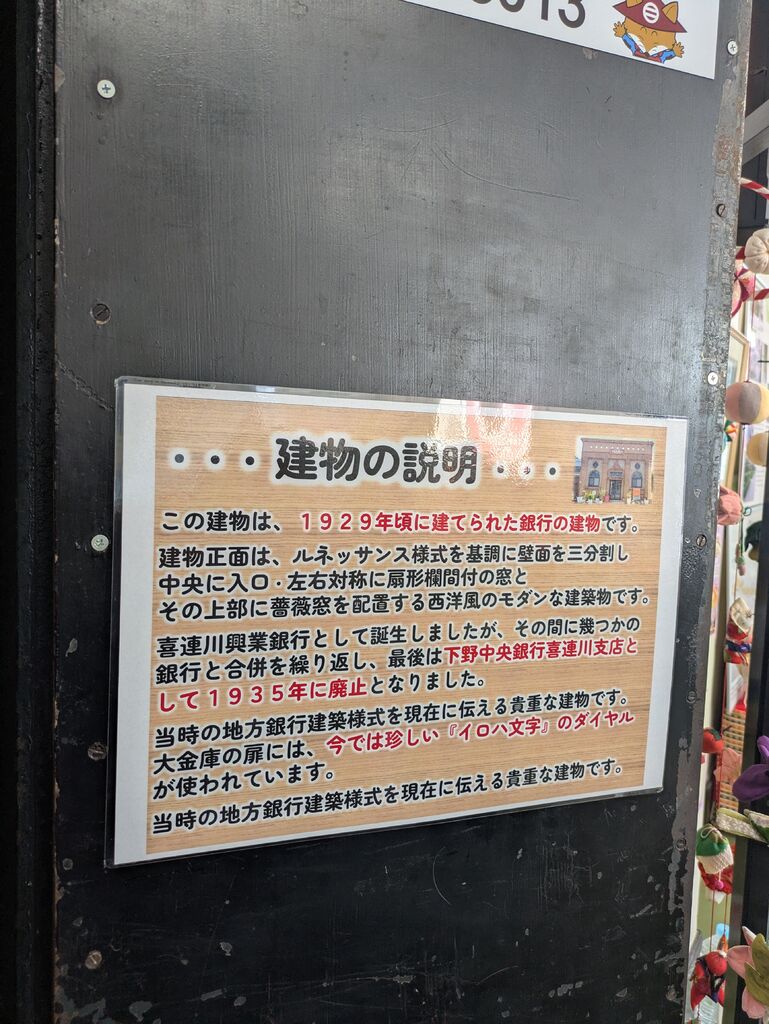 ・・・建物の説明・・・
この建物は、１９２９年頃に建てられた銀行の建物です。
建物正面は、ルネッサンス様式を基調に壁面を三分割し
中央に入口・左右対称に扇形欄間付の窓と
その上部に薔薇窓を配置する西洋風のモダンな建築物です。
喜連川興業銀行として誕生しましたが、その間に幾つかの
銀行と合併を繰り返し、最後は下野中央銀行喜連川支店と
して１９３５年に廃止となりました。
当時の地方銀行建築様式を現在に伝える貴重な建物です。
大金庫の扉には、今では珍しい『イロハ文字』のダイヤル
が使われています。
当時の地方銀行建築様式を現在に伝える貴重な建物です。